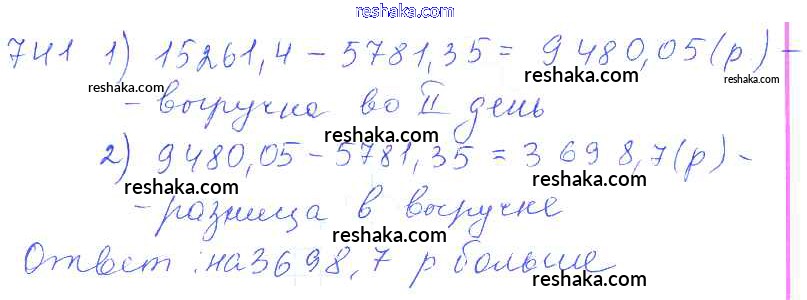 reshaka.com
reshaka.com
741 1) 15261,4 – 5781,35 = 9480,05(р) –
reshaka.com
– выручка во II день
reshaka.com
2) 9480,05 – 5781,35 = 3 698,7(р) –
reshaka.com
reshaka.com
– разница в выручке
reshaka.com
Ответ: на 3698,7 р больше
reshaka.com